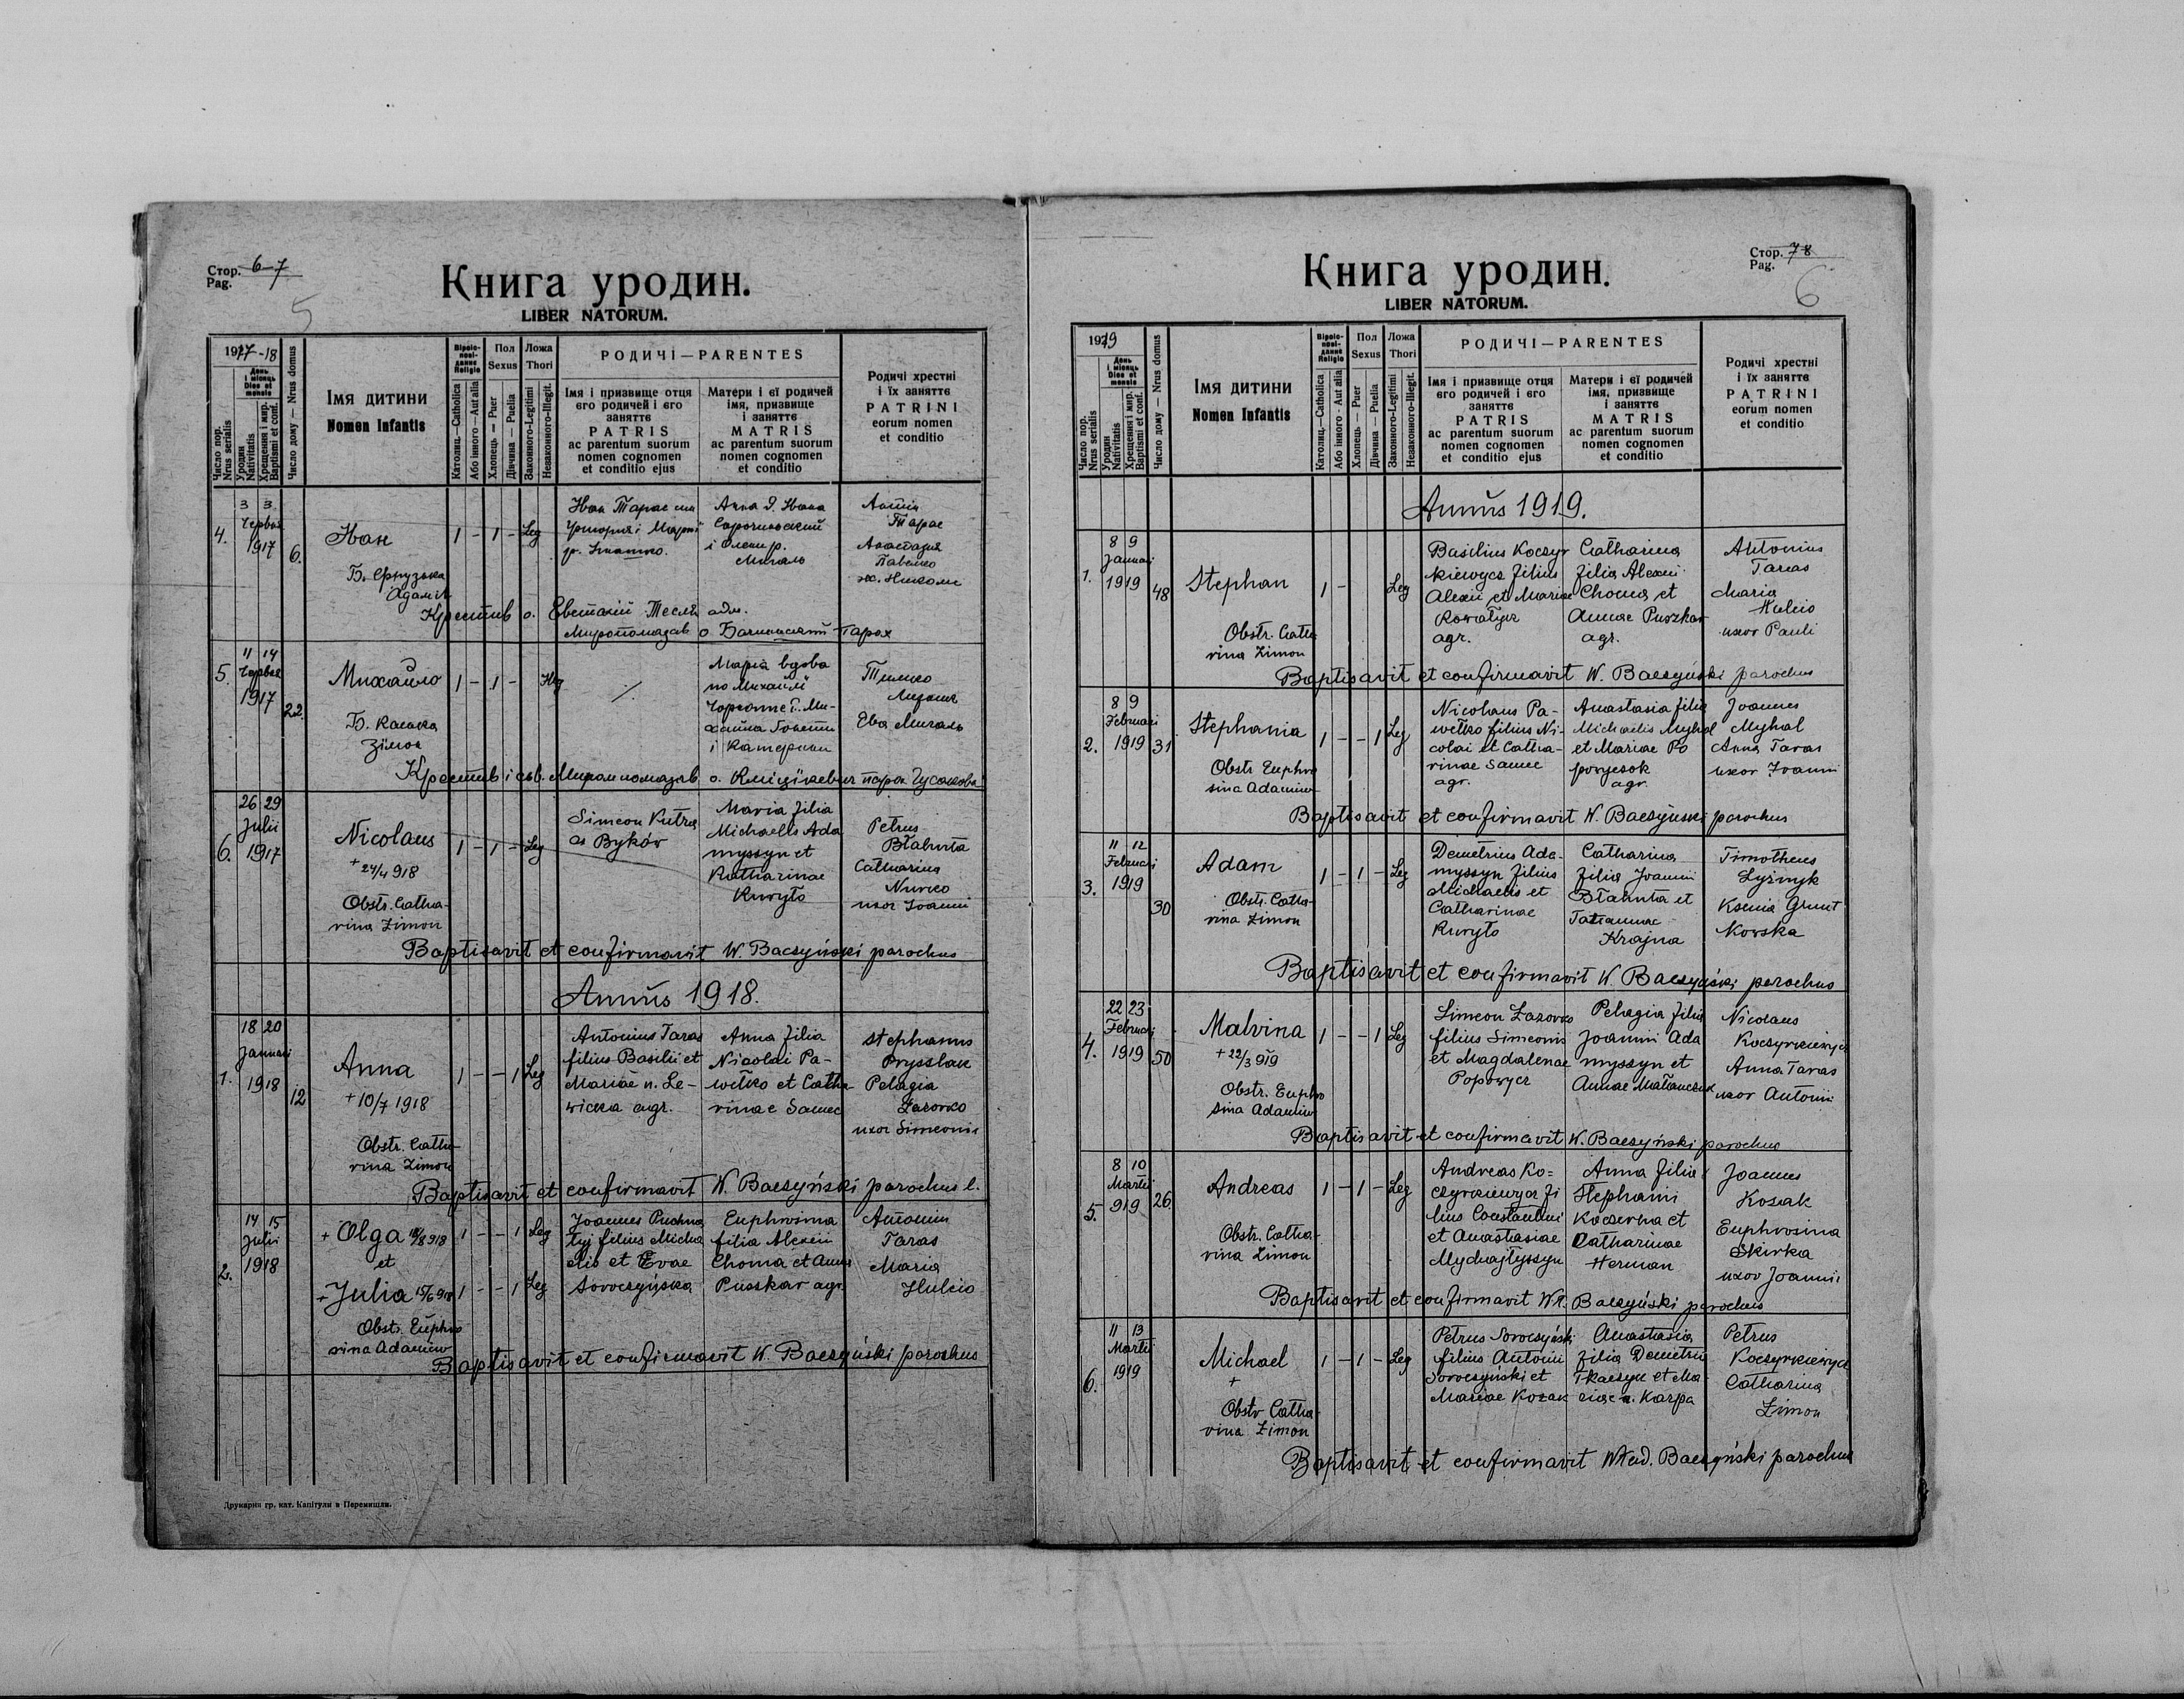 Стор. 6-7
Pag.
5
Книга уродин.
LIBER NATORUM.
1917-18
День і місяць Dies et mensis
Число пор. Nrus serialis
Уродин Nativitatis
Хрещення і мир. Baptismi et conf.
Число дому — Nrus domus
Імя дитини
Nomen Infantis
Віроісповідання Religio
Католиц.—Catholica
Або інного — Aut alia
Пол
Sexus
Хлопець — Puer
Дівчина — Puella
Ложа
Thori
Законного-Legitimi
Незаконного-Illegit.
РОДИЧІ — PARENTES
Імя і призвище отця
єго родичей і єго
занятте
PATRIS
ac parentum suorum
nomen cognomen
et conditio ejus
Матери і єї родичей
імя, призвище
і занятте
MATRIS
ac parentum suorum
nomen cognomen
et conditio
Родичі хрестні
і їх занятте
PATRINI
eorum nomen
et conditio
4.
3 3
Червня
1917
6.
Иван
1 - 1 - Leg
Иван Тарас син
Григорія і Марії
Анна д. Ивана
Сорочинський
і Олени р.
Михаль
Антін
Тарас
Анастазия
Павелко
ж. Николи
Б. Єфрузька
Адамів
Крестив о. Евстахій Тесля адм.
Миропомазав о. Бачинський парох
5.
11 14
Червня
1917
22.
Михайло
1 - 1 -
/
Марія вдова
по Михайлі
і Катерини
Тимко
Ева Михаль
Б. Каська
Зімон
Крестив і св. Миром помазав о.
6.
26 29
Julii
1917
Nicolaus
+ 24/4 918
1 - 1 - Leg
Simeon Kutra
as Byków
Maria filia
Michaelis Ada
myssyn et
Katharinae
Kuryło
Petrus
Błahuta
Catharina
Nunko
uxor Joannis
Obstr. Catha-
rina Zimon
Baptisavit et confirmavit W. Baczyński parochus
Annus 1918.
1.
18 20
Januari
1918
12
Anna
+ 10/7 1918
1 - - 1 Leg
Antonius Taras
filius Basilii et
Mariae n. Le-
wicka agr.
Anna filia
Nicolai Pa-
wełko et Catha
rinae Samec
Stephanus
Prysslak
Pelagia
Łazorko
uxor Simeonis
Obstr. Catha-
rina Zimon
Baptisavit et confirmavit W. Baczyński parochus l.
2.
14 15
Julii
1918
+ Olga 18/8 918
1 - - 1 Leg
et
+ Julia 15/6 918
1 - - 1 Leg
Joannes Puchna
tyj filius Micha
elis et Evae
Soroczyńska
Euphrosina
filia Alexii
Choma et Annae
Puszkar agr.
Antonius
Taras
Maria
Hulcio
Obstr. Euphro
sina Adamiw
Baptisavit et confirmavit W. Baczyński parochus
Друкарня гр. кат. Капітули в Перемишли.
Стор. 78
Pag.
6
Книга уродин.
LIBER NATORUM.
1919
День і місяць Dies et mensis
Число пор. Nrus serialis
Уродин Nativitatis
Хрещення і мир. Baptismi et conf.
Число дому — Nrus domus
Імя дитини
Nomen Infantis
Віроісповідання Religio
Католиц.—Catholica
Або інного - Aut alia
Пол
Sexus
Хлопець — Puer
Дівчина — Puella
Ложа
Thori
Законного-Legitimi
Незаконного-Illegit.
РОДИЧІ — PARENTES
Імя і призвище отця
єго родичей і єго
занятте
PATRIS
ac parentum suorum
nomen cognomen
et conditio ejus
Матери і єї родичей
імя, призвище
і занятте
MATRIS
ac parentum suorum
nomen cognomen
et conditio
Родичі хрестні
і їх занятте
PATRINI
eorum nomen
et conditio
Annus 1919.
1.
8 9
Januari
1919
48
Stephan
1 - Leg
Basilius Koczyr
kiewycz filius
Alexii et Mariae
Kowalyk
agr.
Catharina
filia Alexii
Choma et
Annae Puszkar
agr.
Antonius
Taras
Maria
Hulcio
uxor Pauli
Obstr. Catha
rina Zimon
Baptisavit et confirmavit W. Baczyński parochus
2.
8 9
Februari
1919
31
Stephania
1 - - 1 Leg
Nicolaus Pa-
wełko filius Ni-
colai et Catha-
rinae Samec
agr.
Anastasia filia
Michaelis Myhal
et Mariae Po
porycsok
agr.
Joannes
Myhal
Anna Taras
uxor Joanni
Obstr Euphro
sina Adamiw
Baptisavit et confirmavit W. Baczyński parochus
3.
11 12
Februari
1919
30
Adam
1 - 1 - Leg
Demetrius Ada-
myssyn filius
Michaelis et
Catharinae
Kuryło
Catharina
filia Joanni
Błahuta et
Tatiannae
Krajna
Timotheus
Łyżnyk
Ksenia Grunt
Kowska
Obstr. Catha-
rina Zimon
Baptisavit et confirmavit W. Baczyński parochus
4.
22 23
Februari
1919
50
Malvina
+ 22/3 919
1 - - 1 Leg
Simeon Łazorko
filius Simeonis
et Magdalenae
Popowycz
Pelagia filia
Joanni Ada
myssyn et
Annae Małanczuk
Nicolaus
Koczyrkiewycz
Anna Taras
uxor Antonii
Obstr. Euphro
sina Adamiw
Baptisavit et confirmavit W. Baczyński parochus
5.
8 10
Martii
919
26.
Andreas
1 - 1 - Leg
Andreas Ko=
czyrkiewycz fi
lius Constantini
et Anastasiae
Mychajłyssyn
Anna filia
Stephani
Koczerha et
Catharinae
Herman
Joannes
Kozak
Euphrosina
Skirka
uxor Joannis
Obstr. Catha-
rina Zimon
Baptisavit et confirmavit Wł. Baczyński parochus
6.
11 13
Martii
1919
Michael
+
1 - 1 - Leg
Petrus Soroczyński
filius Antonii
Soroczyński et
Mariae Kozak
Anastasia
filia Demetrii
Tkaczyk et Ma-
riae n. Karpa
Petrus
Koczyrkiewycz
Catharina
Zimon
Obstr Catha-
rina Zimon
Baptisavit et confirmavit Wład. Baczyński parochus